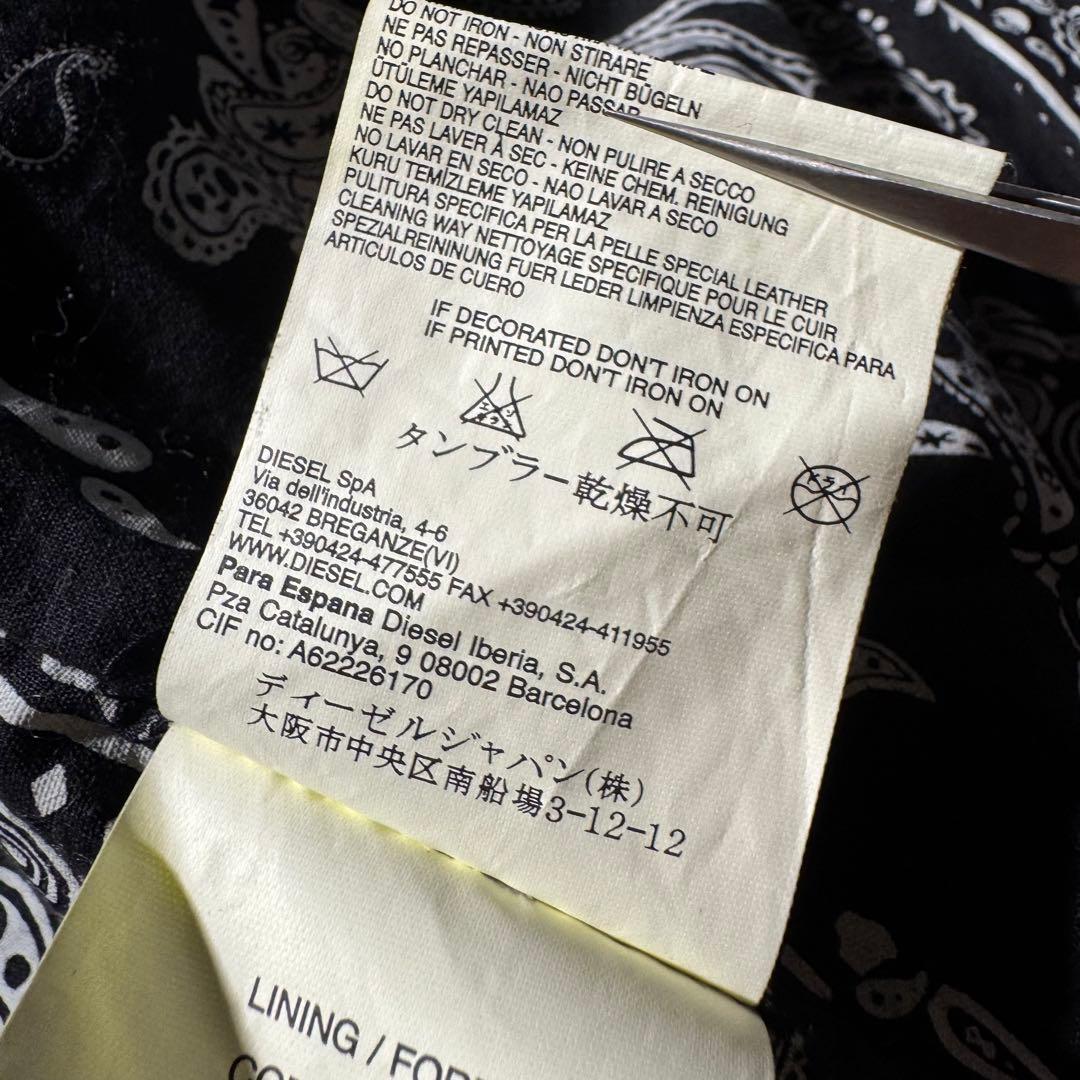 DO NOT IRON - NON STIRARE
NE PAS REPASSER - NICHT BÜGELN
NO PLANCHAR - NAO PASSAR
ÜTÜLEME YAPILAMAZ
DO NOT DRY CLEAN - NON PULIRE A SECCO
NE PAS LAVER À SEC - KEINE CHEM. REINIGUNG
NO LAVAR EN SECO - NAO LAVAR A SECO
KURU TEMİZLEME YAPILAMAZ
PULITURA SPECIFICA PER LA PELLE SPECIAL LEATHER
CLEANING WAY NETTOYAGE SPECIFIQUE POUR LE CUIR
SPEZIALREININUNG FUER LEDER LIMPIENZA ESPECIFICA PARA
ARTICULOS DE CUERO
IF DECORATED DON'T IRON ON
IF PRINTED DON'T IRON ON
エンソ
サラシ
ドライ
タンブラー乾燥不可
DIESEL SpA
Via dell'industria, 4-6
36042 BREGANZE(VI)
TEL +390424-477555 FAX +390424-411955
WWW.DIESEL.COM
Para Espana Diesel Iberia, S.A.
Pza Catalunya, 9 08002 Barcelona
CIF no: A62226170
ディーゼルジャパン(株)
大阪市中央区南船場3-12-12
LINING / FOD